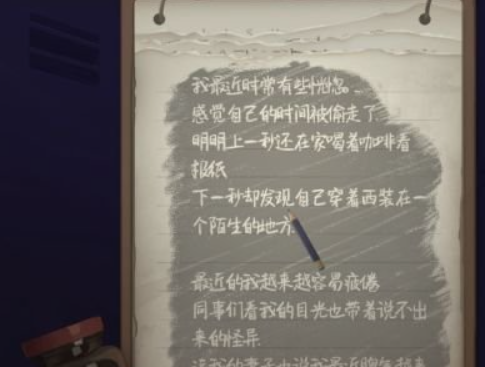 我最近时常有些恍惚。
感觉自己的时间被偷走了
明明上一秒还在家喝着咖啡看
报纸
下一秒却发现自己穿着西装在一
个陌生的地方
最近的我越来越容易疲倦
同事们看我的目光也带着说不出
来的怪异
我的妻子也说我最近脾气越来